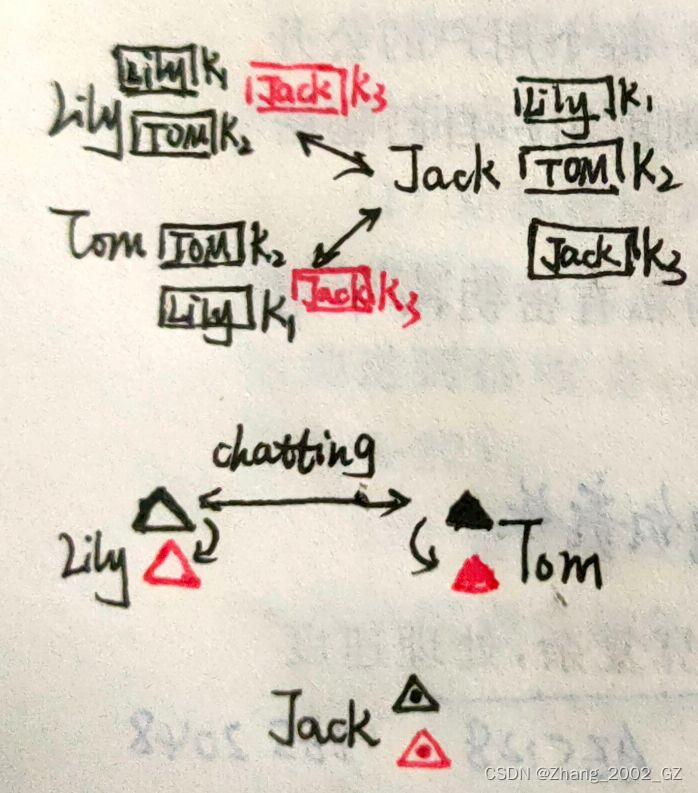 Lily K1 Jack K3
Lily TOM K2
Lily K1
Jack TOM K2
Jack K3
Tom TOM K2
Lily K1 Jack K3
chatting
Lily Tom
Jack
CSDN @Zhang_2002_GZ